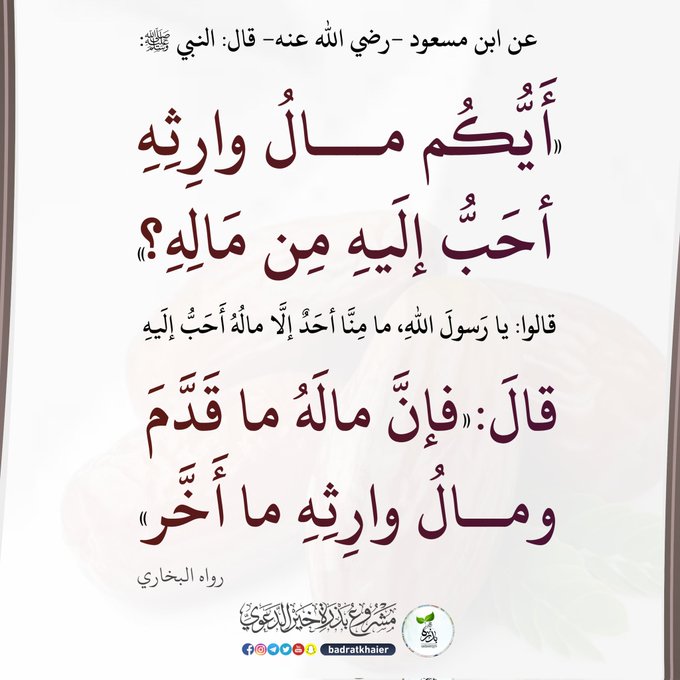 عن ابن مسعود -رضي الله عنه- قال: النبي ﷺ:
«أَيُّكُم مـــالُ وارِثِهِ
أحَبُّ إلَيهِ مِن مَالِهِ؟»
قالوا: يا رَسولَ اللهِ، ما مِنَّا أحَدٌ إلَّا مالُهُ أَحَبُّ إلَيهِ
قالَ: «فإنَّ مالَهُ ما قَدَّمَ
ومـــالُ وارِثِهِ ما أَخَّر»
رواه البخاري
مشروع بذرة خير الدعوي
بذرة
badratkhaier